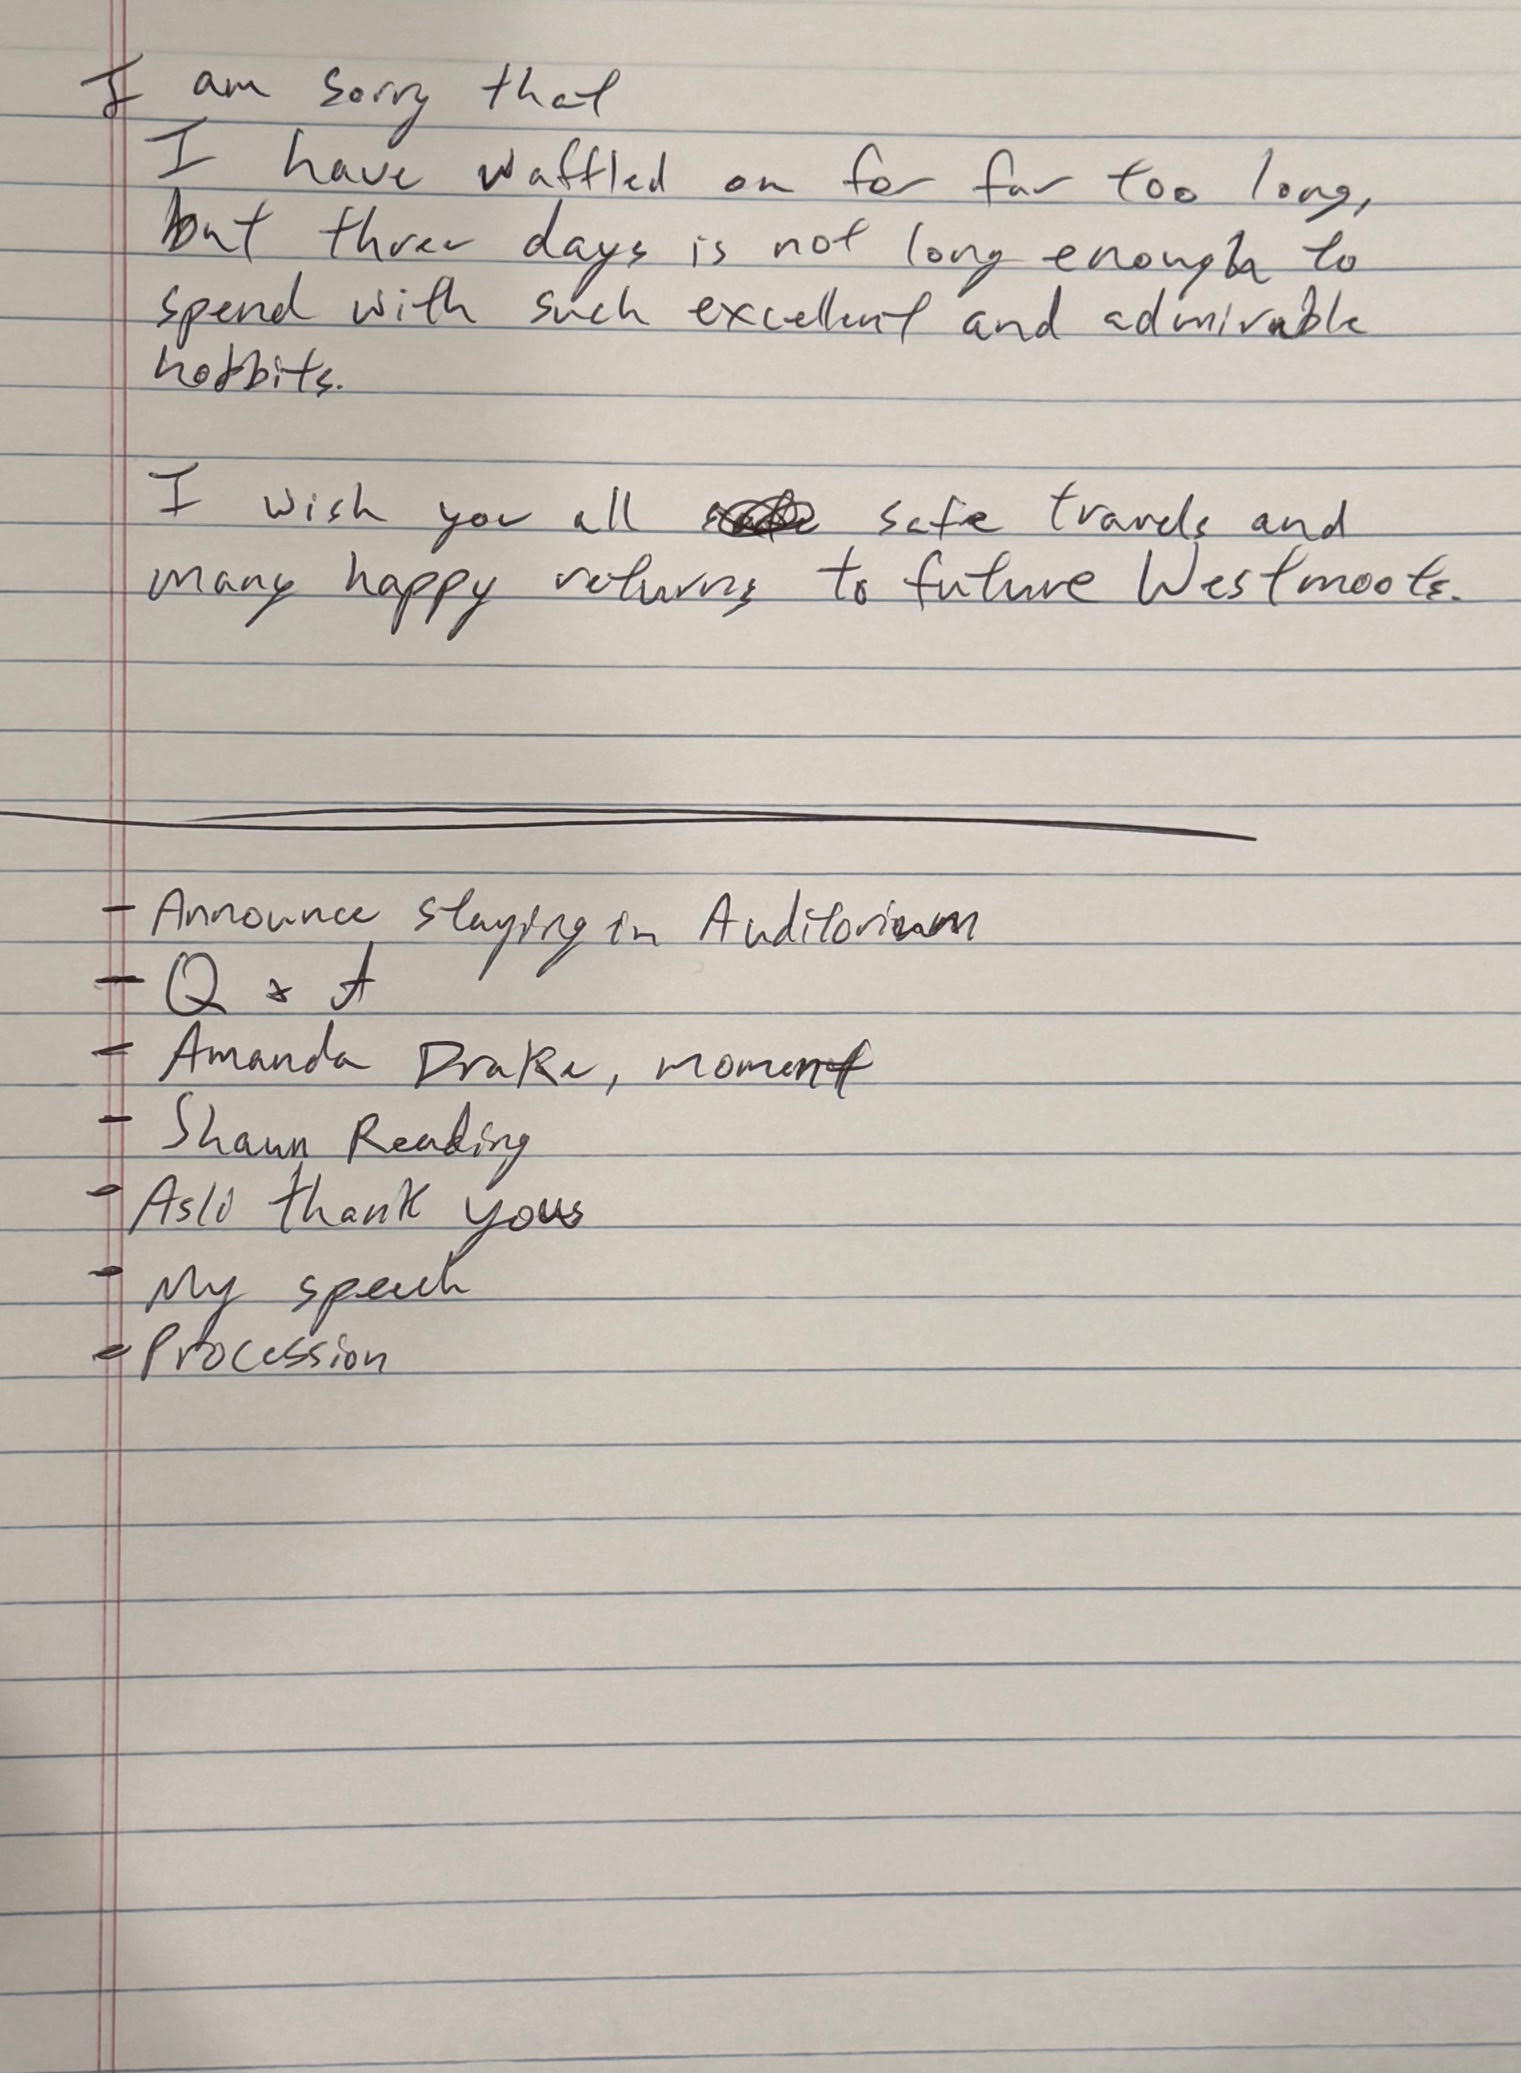 I am sorry that
I have waffled on for far too long,
but three days is not long enough to
spend with such excellent and admirable
hobbits.
I wish you all safe travels and
many happy returns to future Westmoots.
- Announce staying in Auditorium
- Q & A
- Amanda Drake, moment
- Shaun Reading
- Asli thank yous
- My speech
- Procession